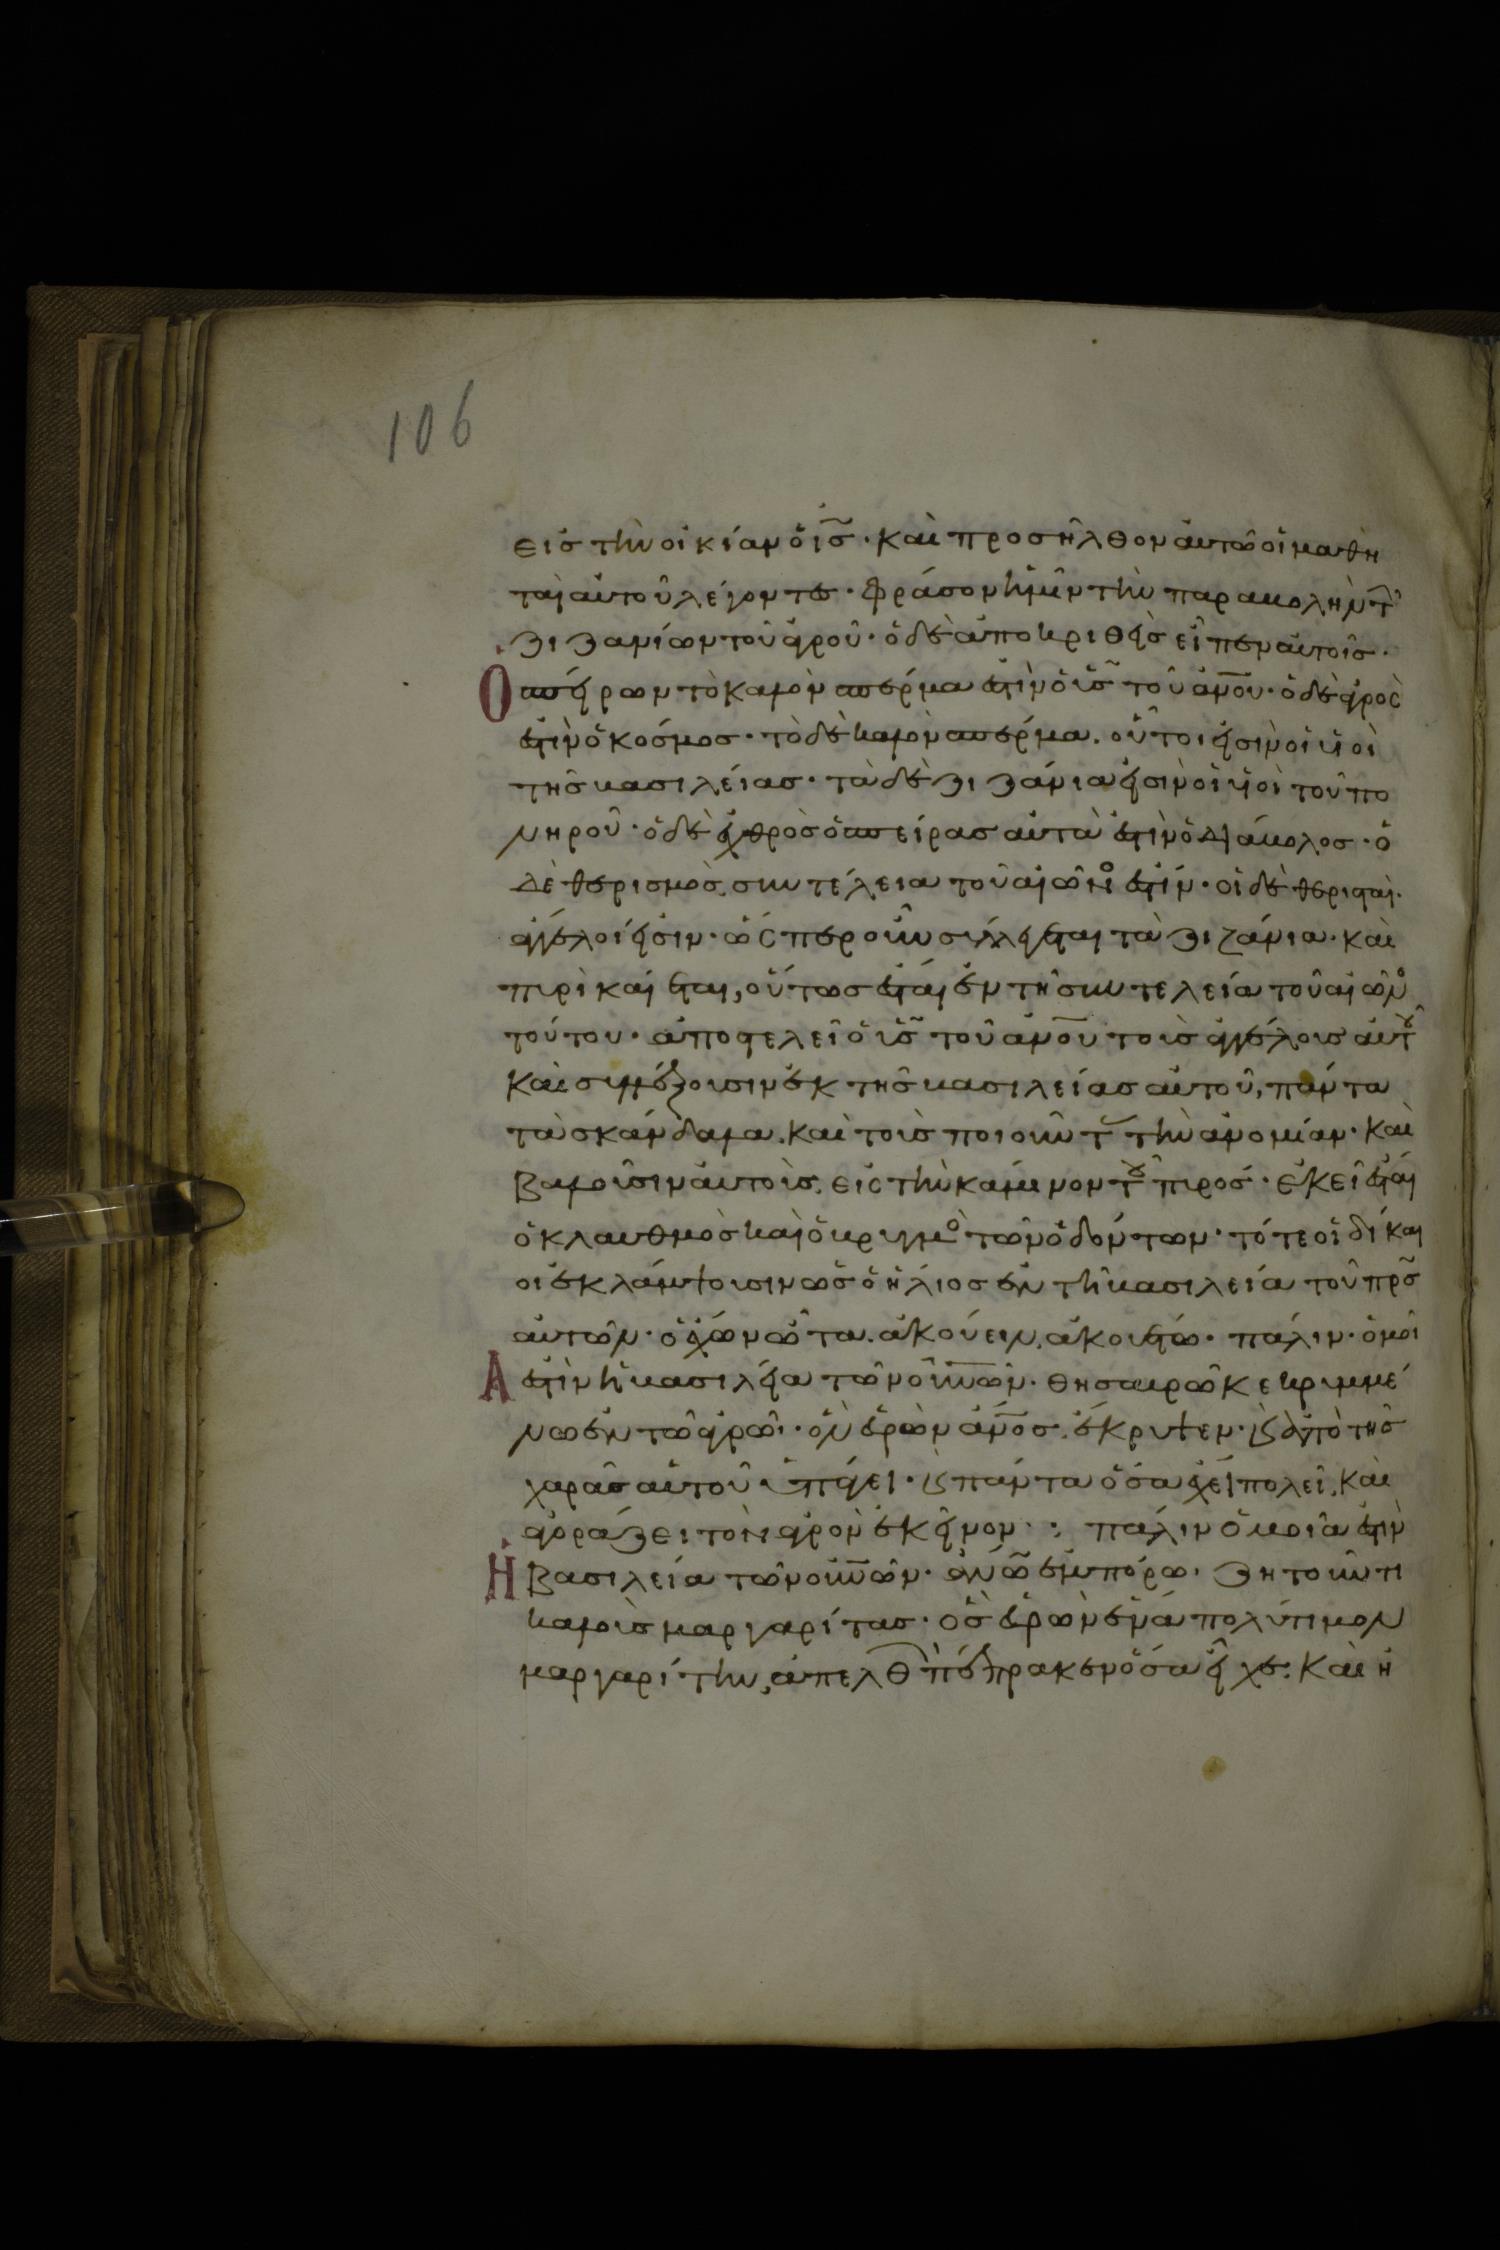 106
εἰς τὴν οἰκίαν ὁ ις̅. καὶ προσῆλθον αὐτῶ οἱ μαθη
ταὶ αὐτοῦ λέγοντες· φράσον ἡμῖν τὴν παραβολὴν τ̅
ζιζανίων τοῦ ἀγροῦ· ὁ δὲ ἀποκριθεὶς εἶπεν αὐτοῖς·
Ὁ σπείρων τὸ καλὸν σπέρμα ἐστὶν ὁ υς̅ τοῦ ἀνο̅υ· ὁ δὲ ἀγρὸς
ἐστὶν ὁ κόσμος· τὸ δὲ καλὸν σπέρμα. οὗτοι εἰσὶν οἱ υἱοὶ
τῆς βασιλείας· τὰ δὲ ζιζάνια εἰσὶν οἱ υἱοὶ τοῦ πο
νηροῦ· ὁ δὲ ἐχθρὸς ὁ σπείρας αὐτὰ ἐστὶν ὁ διάβολος· ὁ
δὲ θερισμὸς, συντέλεια τοῦ αἰῶνο ἐστίν· οἱ δὲ θερισταὶ.
ἄγγελοί εἰσιν· ὥσπερ οὖν συλλέγεται τὰ ζιζάνια· καὶ
πυρὶ καίεται, οὕτως ἔσται ἐν τῆ συντελεία τοῦ αἰῶνο
τούτου· ἀποστελεῖ ὁ υς̅ τοῦ ἀνο̅υ τοὺς ἀγγέλους αὐτου
καὶ συλλέξουσιν ἐκ τῆς βασιλείας αὐτοῦ, πάντα
τὰ σκάνδαλα. καὶ τοὺς ποιοῦντ̅ τὴν ἀνομίαν· καὶ
βαλοῦσιν αὐτοὺς, εἰς τὴν κάμινον του πυρός· ἐκεῖ ἔσται
ὁ κλαυθμὸς καὶ ὁ βρυγμὸ τῶν ὀδόντων· τότε οἱ δίκαι
οι ἐκλάμψουσιν ὡς ὁ ἥλιος ἐν τῆ βασιλεία τοῦ πρς̅
αὐτῶν· ὁ ἔχων ὦτα. ἀκούειν, ἀκουέτω· πάλιν· ὁμοί
Α ἐστὶν ἡ βασιλεία τῶν οὐν̅ῶν· θησαυρῶ κεκρυμμέ
νω ἐν τῶ ἀγρῶ· ὃν εὑρὼν ἄνο̅ς. ἔκρυψεν· ϗ ἀπὸ τῆς
χαρᾶς αὐτοῦ ὑπάγει· ϗ πάντα ὅσα ἔχει πολεῖ, καὶ
ἀγοράζει τὸν ἀγρὸν ἐκεῖνον· : πάλιν ὁμοία ἐστὶν
Ἡ βασιλεία τῶν οὐν̅ῶν. ἀνω̅ ἐμπόρω. ζητοῦντι
καλοὺς μαργαρίτας· ὃς εὑρὼν ἕνα πολύτιμον
μαργαρίτην, ἀπελθ πέπρακεν ὅσα εἶχε: καὶ ἠ